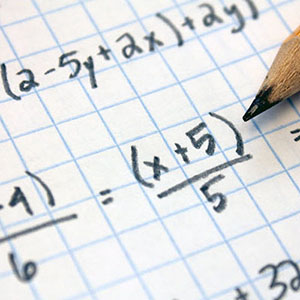 (2-5y+2x)+2y)
-4)/6 = (x+5)/5
+32